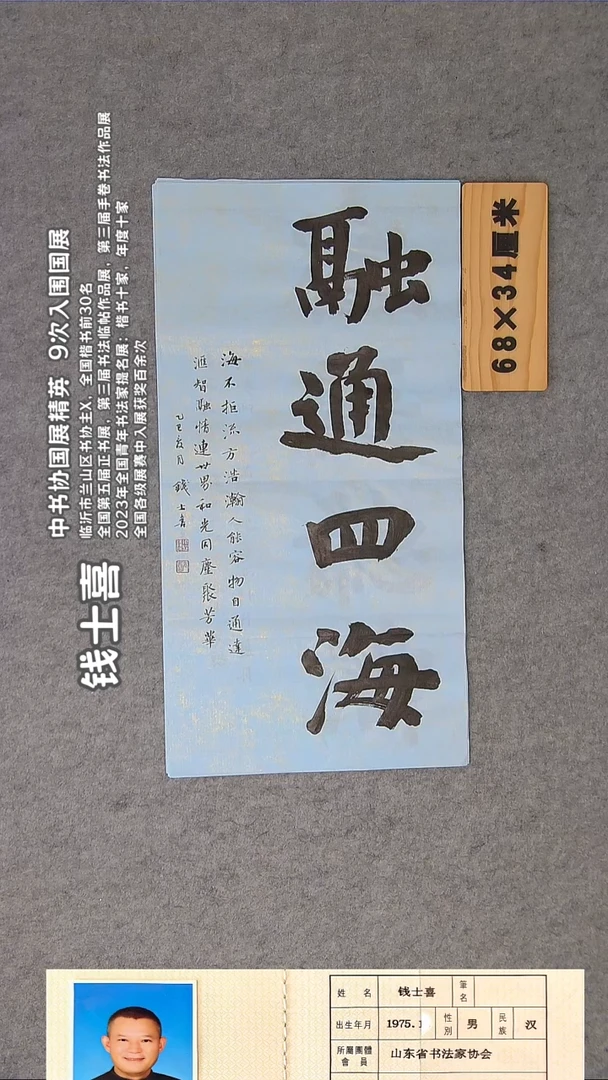 钱士喜
中书协国展精英 9次入围国展
临沂市兰山区书协主X、全国楷书前30名
全国第五届正书展，第三届书法临帖作品展，第三届手卷书法作品展
2023年全国青年书法家提名展；楷书十家，年度十家
全国各级展赛中入展获奖百余次
68×34厘米
融通四海
海不拒流方浩瀚人能容物自通达
汇智融情连世界和光同尘聚芳华
乙巳夏月 钱士喜
姓名 钱士喜 筆名
出生年月 1975. 性別 男 民族 汉
所屬團體會員 山东省书法家协会